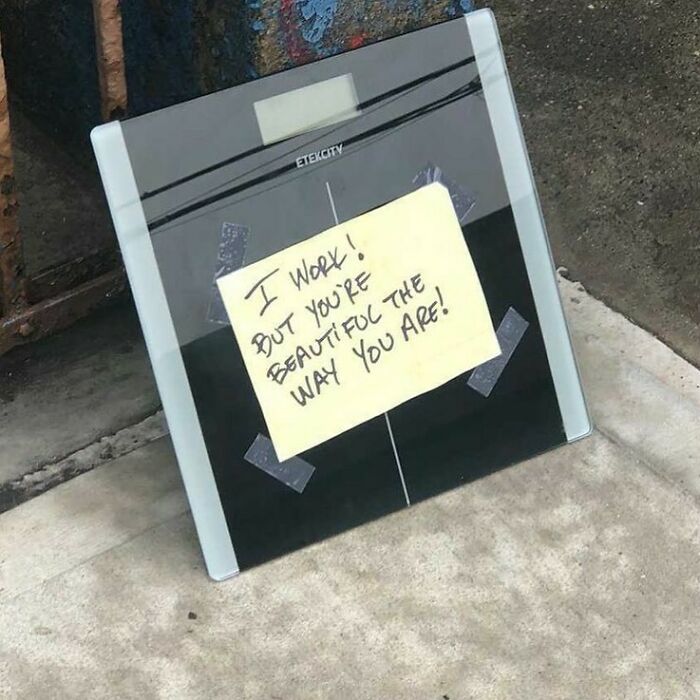 ETEKCITY
I WORK!
BUT YOU'RE
BEAUTIFUL THE
WAY YOU ARE!